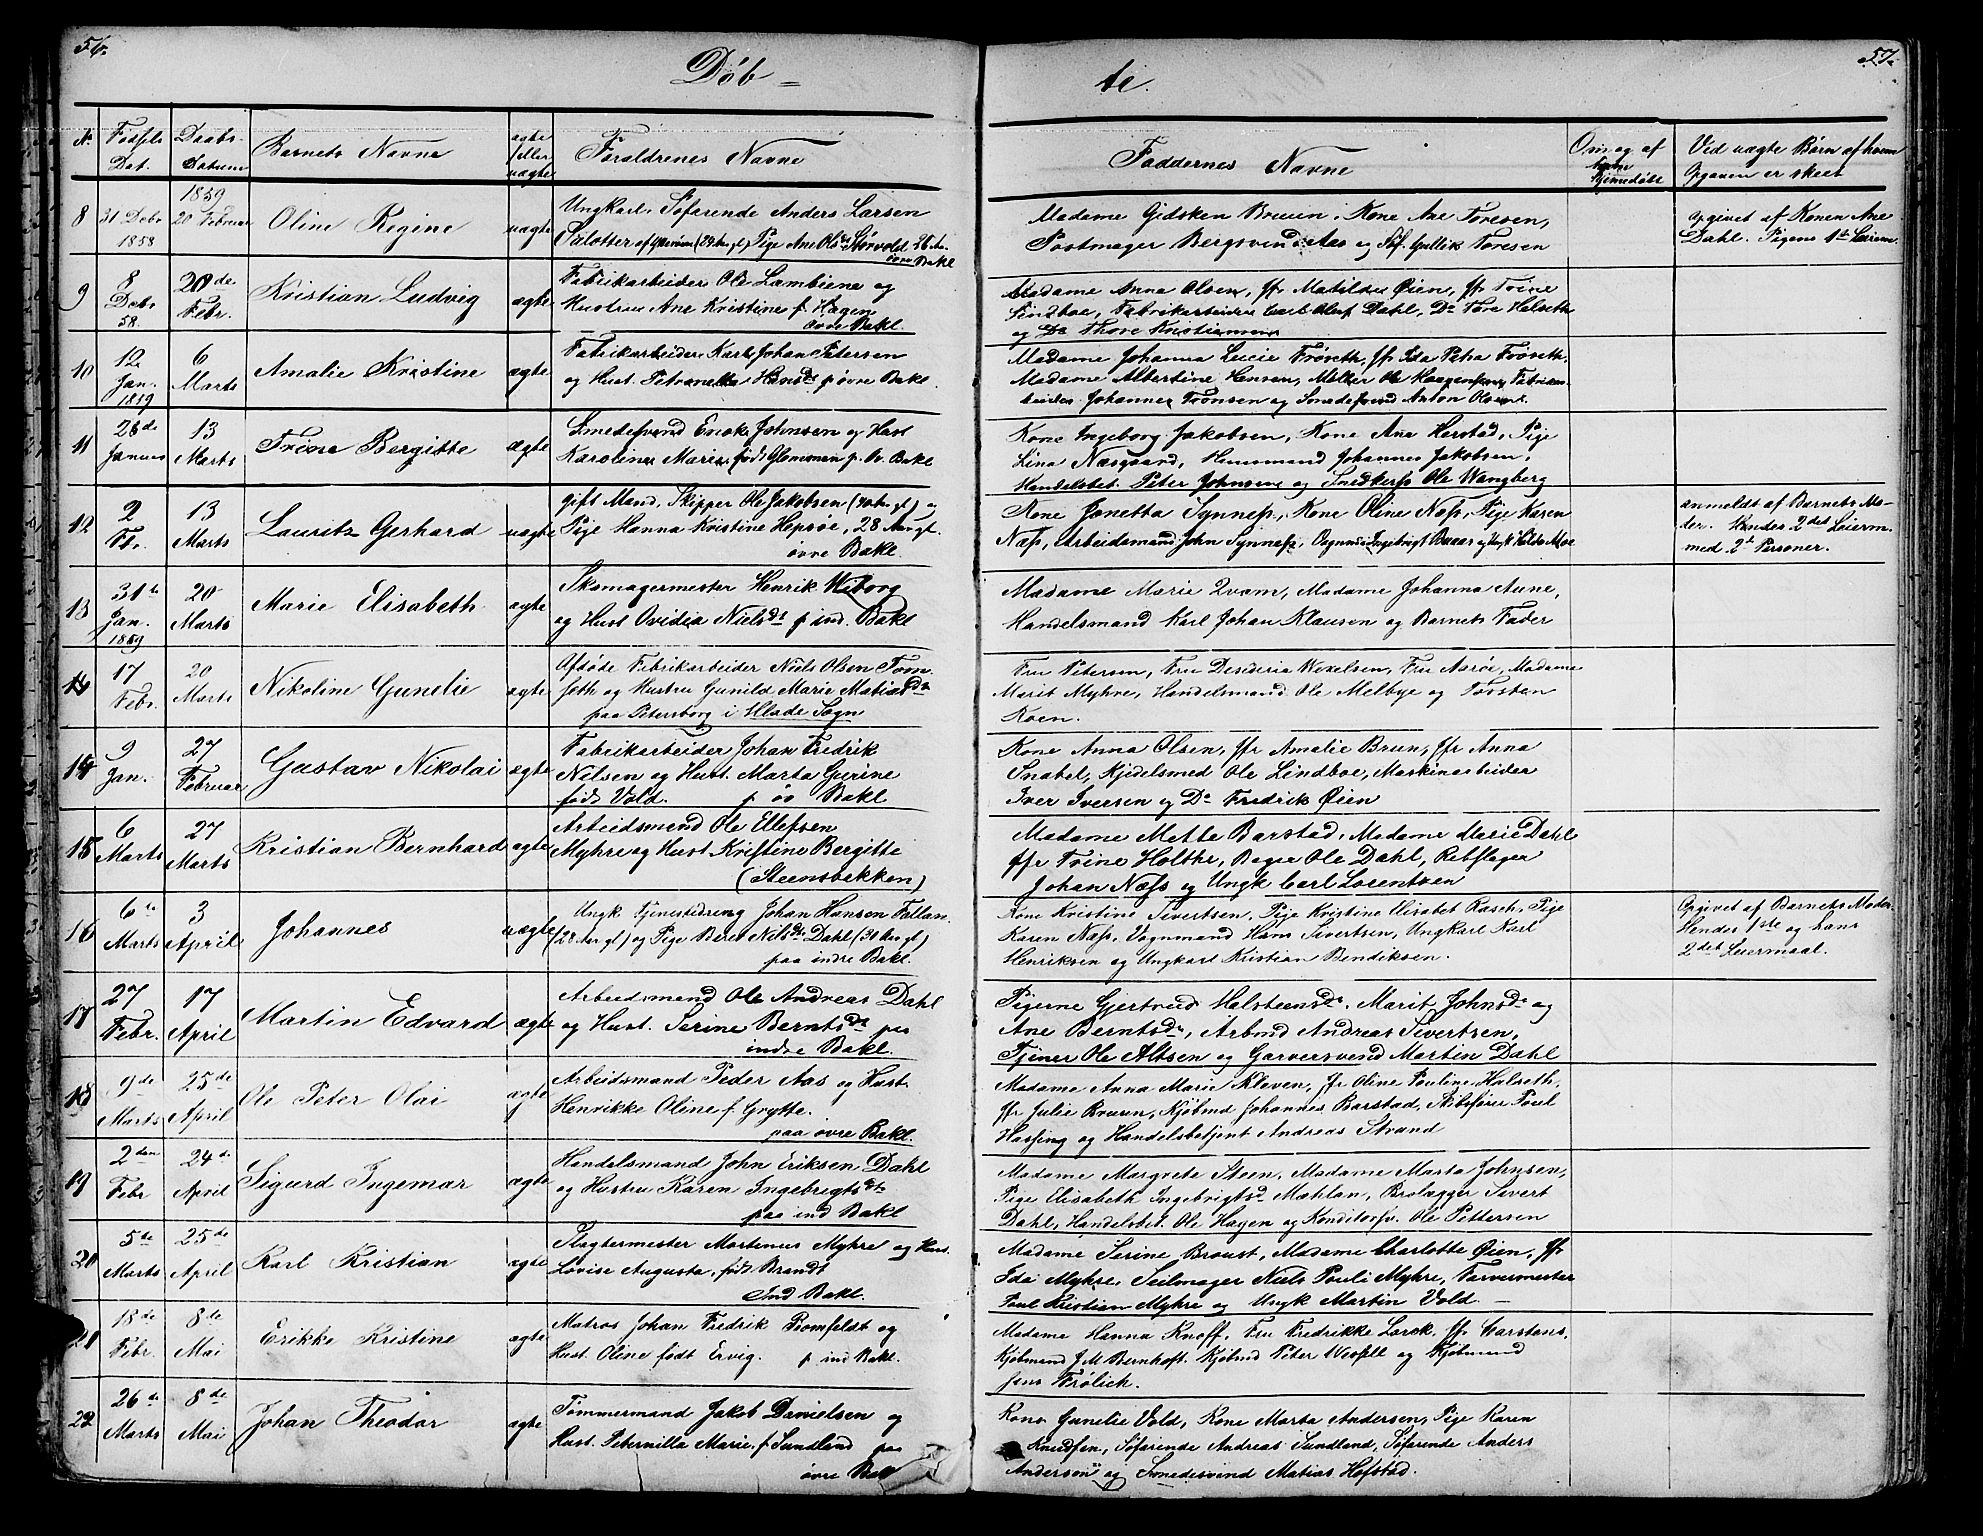 56.
57.
Døb =
te.
№
Fødsels Dat.
Daabs- Datum
Barnets Navne
ægte eller uægte
Forældrenes Navne
Faddernes Navne
Om og af hvem hjemedøbt
Ved uægte Børn af hvem Opgaven er skeet
8
31 Decbr 1858
1859 20 Februar
Oline Regine
uægte
Ungkarl, Søfarende Anders Larsen
(28 Aar gl) Pige Ane Ols Sørvold 26 Aar
øvre Bakl
Madame Gidsken Bruun, Kone Ane Toresen,
Postmager Bergsvend Aas og Søf. Gullik Toresen
opgivet af Konen Ane
Dahl. Pigens 1st Leierm.
9
8 Decbr 58.
20de Febr.
Kristian Ludvig
ægte
Fabrikarbeider Ole Lambiene og
Hustru Ane Kristine f. Hagen
øvre Bakl.
Madame Anna Olsen, Jfr Matilde Øien, Jfr Trine
Lindboe, Fabrikarbeider Carl Oluf Dahl, Do Tore Halseth
og Do Thore Kristiansen
10
12 Jan. 1859
6 Marts
Amalie Kristine
ægte
Fabrikarbeider Karl Johan Petersen
og Hust. Petronella Hansdr p øvre Bakl.
Madame Johanna Lucie Frøseth, Jfr Ida Petra Frøseth,
Madame Albertine Hensen, Møller Ole Haagensen, Fabrikar-
beider Johannes Tronsen og Smedesvend Anton Olsen.
11
28de Januar
13 Marts
Trine Bergitte
ægte
Smedesvend Enok Johnsen og Hust
Karoline Marie, født Glommen p. øv. Bakl
Kone Ingeborg Jakobsen, Kone Ane Herstad, Pige
Lina Næsgaard, Huusmand Johannes Jakobsen,
Handelsbet. Peter Johnsen og Snedkersv Ole Wangberg
12
2 Fbr.
13 Marts
Laurits Gerhard
uægte
gift Mand, Skipper Ole Jakobsen (40 Aar gl) og
Pige Hanna Kristine Hepsøe, 28 Aar gl.
øvre Bakl.
Kone Jonetta Synnes, Kone Oline Næss, Pige Karen
Næss, Arbeidsmand John Synnes, Vognmand Ingebrigt Buaas og Ungk Halde Moe
anmeldt af Barnets Mo-
der. Hendes 2det Leierm.
med 2de Personer.
13
31te Jan. 1859
20 Marts
Marie Elisabeth
ægte
Skomagermester Henrik Wiborg
og Hust Ovidia Nielsdr p ind. Bakl
Madame Marie Qvam, Madame Johanna Aune,
Handelsmand Karl Johan Klausen og Barnets Fader
14
17 Febr.
20 Marts
Nikoline Gunelie
ægte
Afdøde Fabrikarbeider Niels Olsen Trøn-
seth og Hustru Gunild Marie Matiasdr
paa Petersborg i Hlade Sogn
Fru Petersen, Fru Desideria Wexelsen, Fru Aarøe, Madame
Marit Myhre, Handelsmand Ole Melbye og Torsten
Koen.
14
9 Jan.
27 Februar
Gustav Nikolai
ægte
Fabrikarbeider Johan Fredrik
Nelsen og Hust. Marta Gurine
født Vold. p øv Bakl
Kone Anna Olsen, Jfr Amalie Brun, Jfr Anna
Snabel, Kjedelsmed Ole Lindboe, Maskinarbeider
Iver Iversen og Do Fredrik Øien
15
6 Marts
27 Marts
Kristian Bernhard
ægte
Arbeidsmand Ole Ellefsen
Myhre og Hust Kristine Bergitte
(Steensbakken)
Madame Mette Barstad, Madame Marie Dahl
Jfr Trine Holthe, Bager Ole Dahl, Rebslager
Johan Næss og Ungk Carl Lorentzen
16
6te Marts
3 April
Johannes
uægte
Ungk Tjenestedreng Johan Hansen Fallan
(28 Aar gl) og Pige Beret Nilsdr Dahl (30 Aar gl)
paa indre Bakl.
Kone Kristine Sivertsen, Pige Kristine Elisabet Rasch, Pige
Karen Næss, Vognmand Hans Sivertsen, Ungkarl Karl
Henriksen og Ungkarl Kristian Bendiksen.
Opgivet af Barnets Moder
Hendes 1ste og hans
2det Leiermaal.
17
27 Febr.
17 April
Martin Edvard
ægte
Arbeidsmand Ole Andreas Dahl
og Hust. Serine Berntsdr paa
indre Bakl.
Pigerne Gjertrud Halsteensdr, Marit Johnsdr og
Ane Berntsdr, Arbmd Andreas Sivertsen,
Tjener Ole Altsen og Garversvend Martin Dahl
18
9de Marts
25de April
Ole Peter Olai
ægte
Arbeidsmand Peder Aas og Hust
Henrikke Oline f. Grytte.
paa øvre Bakl.
Madame Anna Marie Kleven, Jfr Oline Pauline Halseth,
Jfr Julie Bruun, Kjøbmd Johannes Barstad, Skibsfører Poul
Hassing og Handelsbetjent Andreas Strand
19
2den Febr
24de April
Sigurd Ingemar
ægte
Handelsmand John Eriksen Dahl
og Hustru Karen Ingebrigtsdtr
paa ind Bakl
Madame Margrete Steen, Madame Marta Johnsen,
Pige Elisabeth Ingebrigtsd Mæhlan, Brolægger Sivert
Dahl, Handelsbet. Ole Hagen og Konditorsv. Ole Pettersen
20
5te Marts
25de April
Karl Kristian
ægte
Slagtermester Mortinus Myhre og Hus.
Lovise Augusta, født Brandt
Ind Bakl.
Madame Serine Broust, Madame Charlotte Øien, Jfr
Ida Myhre, Seilmager Niels Pouli Myhre, Farvermester
Poul Kristian Myhre og Ungk Martin Vold. —
21
18de Febr.
8de Mai
Erikke Kristine
ægte
Matros Johan Fredrik Bomfeldt og
Hust. Oline født Ervig. p ind Bakl.
Madame Hanna Knoff, Fru Fredrikke Lorck, Jfr Carstens,
Kjøbmand J M Bernhoft. Kjøbmd Peter Wessell og Kjøbmand
Jens Frølich.
22
26de Marts
8de Mai
Johan Theodor
ægte
Tømmermand Jakob Danielsen og
Hust. Peternilla Marie f Sundland paa
øvre Bakl
Kone Gunelie Vold, Kone Marta Andersen, Pige Karen
Knudsen, Søfarende Andreas Sundland, Søfarende Anders
Andersen og Smedesvend Matias Hofstad.